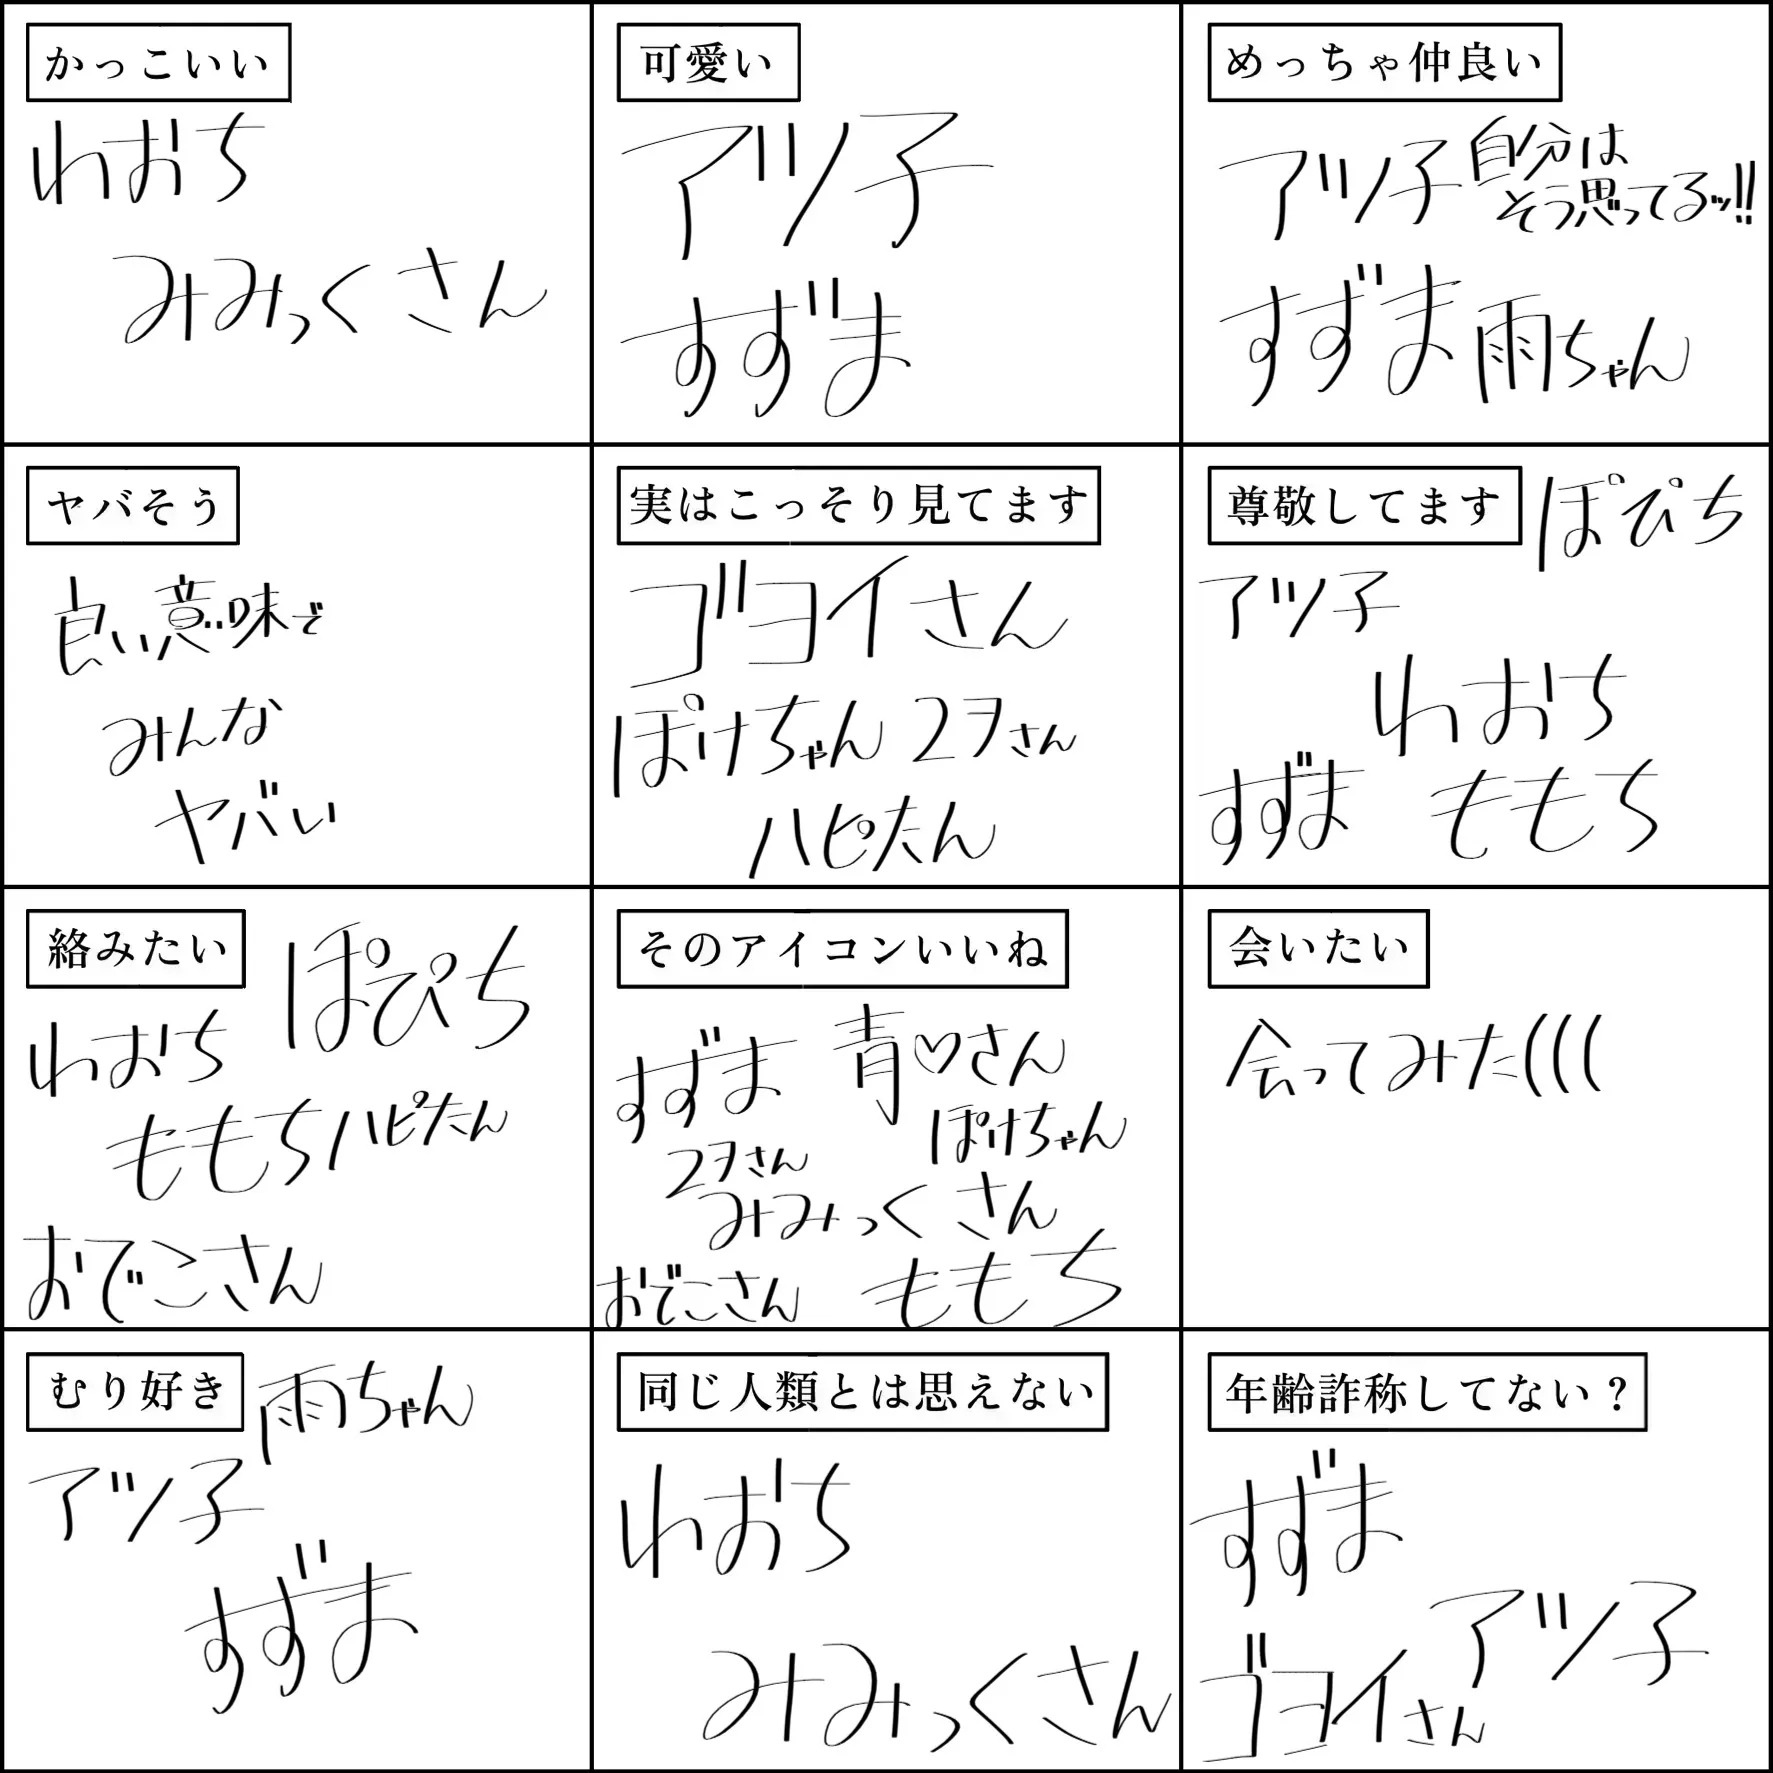 かっこいい
わおち
みみっくさん
可愛い
アツ子
すずま
めっちゃ仲良い
アツ子 自分は
そう思ってるッ!!
すずま 雨ちゃん
ヤバそう
良い意味で
みんな
ヤバい
実はこっそり見てます
ゴヨイさん
ぽけちゃん 2ヲさん
ハピたん
尊敬してます
ぽぴち
アツ子
わおち
すずま ももち
絡みたい
ぽぴち
わおち
ももち ハピたん
おでこさん
そのアイコンいいね
すずま 青♡さん
ぽけちゃん
2ヲさん
みみっくさん
おでこさん ももち
会いたい
会ってみた(((
むり好き
雨ちゃん
アツ子
すずま
同じ人類とは思えない
わおち
みみっくさん
年齢詐称してない？
すずま
アツ子
ゴヨイさん